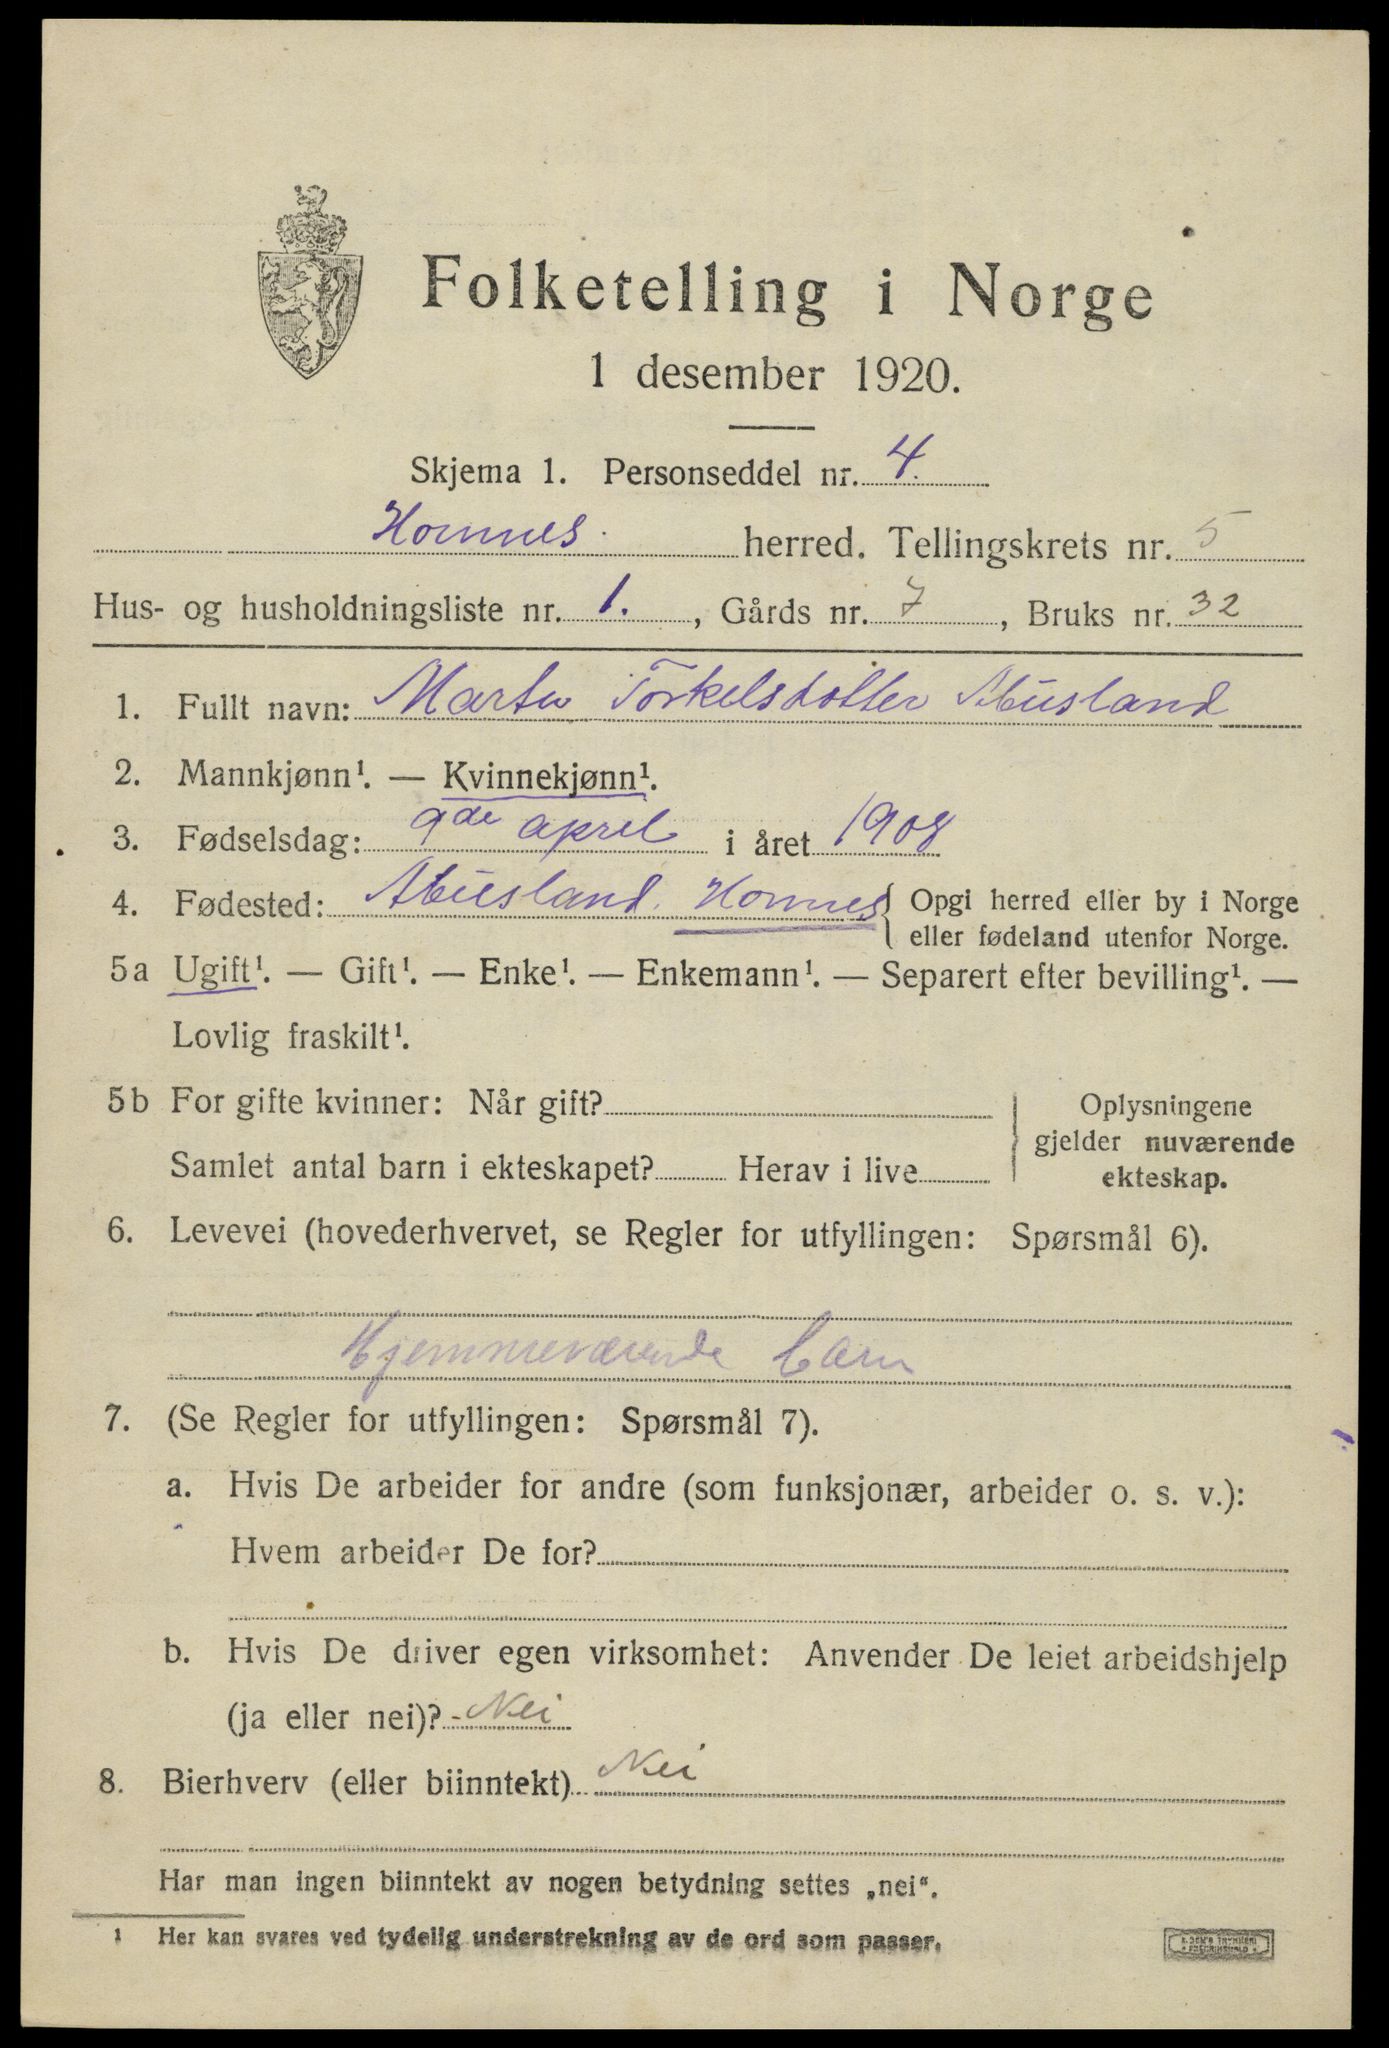 Folketelling i Norge
1 desember 1920.
Skjema 1. Personseddel nr. 4.
Hornnes herred. Tellingskrets nr. 5
Hus- og husholdningsliste nr. 1., Gårds nr. 7, Bruks nr. 32
1. Fullt navn: Torkelsdotter Abusland
2. Mannkjønn¹. — Kvinnekjønn¹.
3. Fødselsdag: 9de april i året 1908
4. Fødested: Abusland. Hornnes { Opgi herred eller by i Norge
eller fødeland utenfor Norge.
5a Ugift¹. — Gift¹. — Enke¹. — Enkemann¹. — Separert efter bevilling¹. —
Lovlig fraskilt¹.
5b For gifte kvinner: Når gift?
Samlet antal barn i ekteskapet? Herav i live
Oplysningene
gjelder nuværende
ekteskap.
6. Levevei (hovederhvervet, se Regler for utfyllingen: Spørsmål 6).
Hjemmeværende barn
7. (Se Regler for utfyllingen: Spørsmål 7).
a. Hvis De arbeider for andre (som funksjonær, arbeider o. s. v.):
Hvem arbeider De for?
b. Hvis De driver egen virksomhet: Anvender De leiet arbeidshjelp
(ja eller nei)? - Nei
8. Bierhverv (eller biinntekt) Nei
Har man ingen biinntekt av nogen betydning settes „nei“.
1 Her kan svares ved tydelig understrekning av de ord som passer.